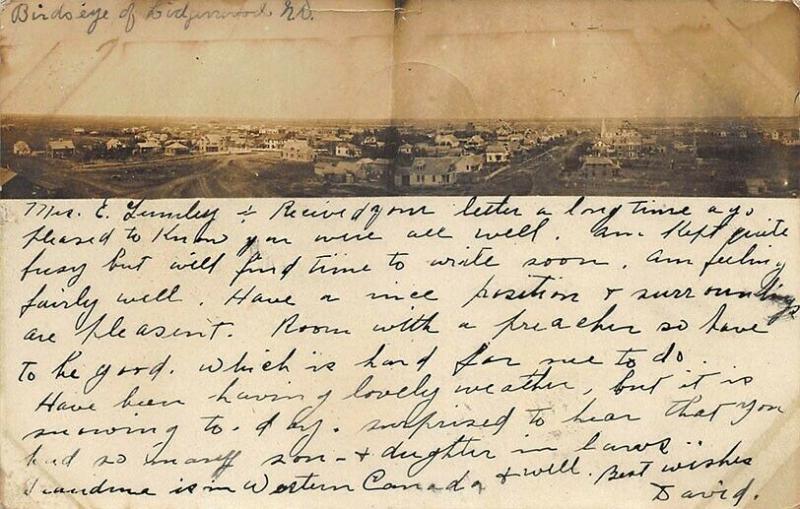 Birdseye of Lidgerwood N.D.
Mrs. E. Lumley :- Recived your letter a long time ago
pleased to Know you were all well. am Kept quite
busy but will find time to write soon. Am feeling
fairly well. Have a nice position & surroundings
are pleasent. Room with a preacher so have
to be good. which is hard for me to do.
Have been having lovely weather, but it is
snowing to-day. surprised to hear that you
had so many son- & dughter in laws.
Grandma is in Western Canada & well. Best wishes
David.